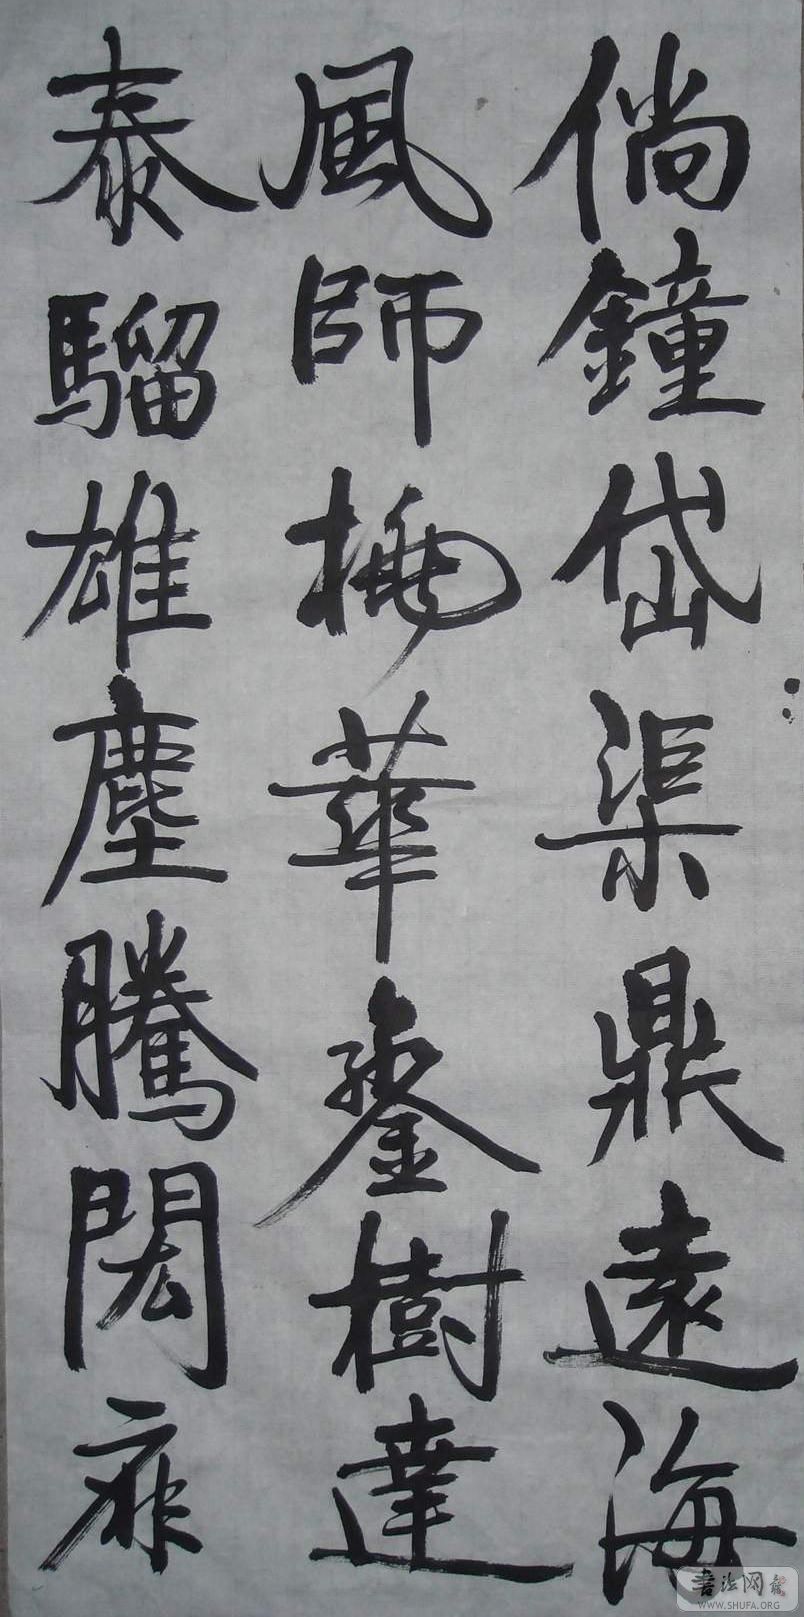 倘鐘岱渠鼎遠海
風師華樹達
泰騮雄塵騰閎
書法网
WWW.SHUFA.ORG